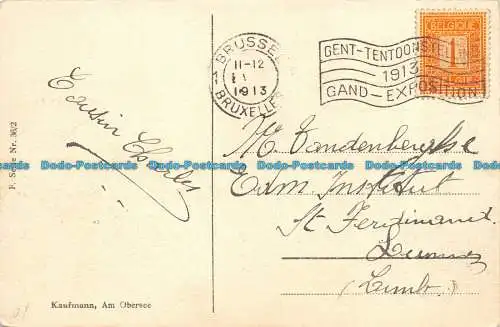 BRUSSEL
11-12
1913
BRUXELLES
GENT-TENTOONSTELLING
1913
GAND - EXPOSITION
BELGIQUE
1
Cousin Charles
M. Vandenberghe
Edm. Institut
St Ferdinand
Lummen
(Limb.)
F. Serie Nr. 36/2
Kaufmann, Am Obersee
Dodo-Postcards Dodo-Postcards Dodo-Postcards Dodo-Postcards Dodo-Postcards